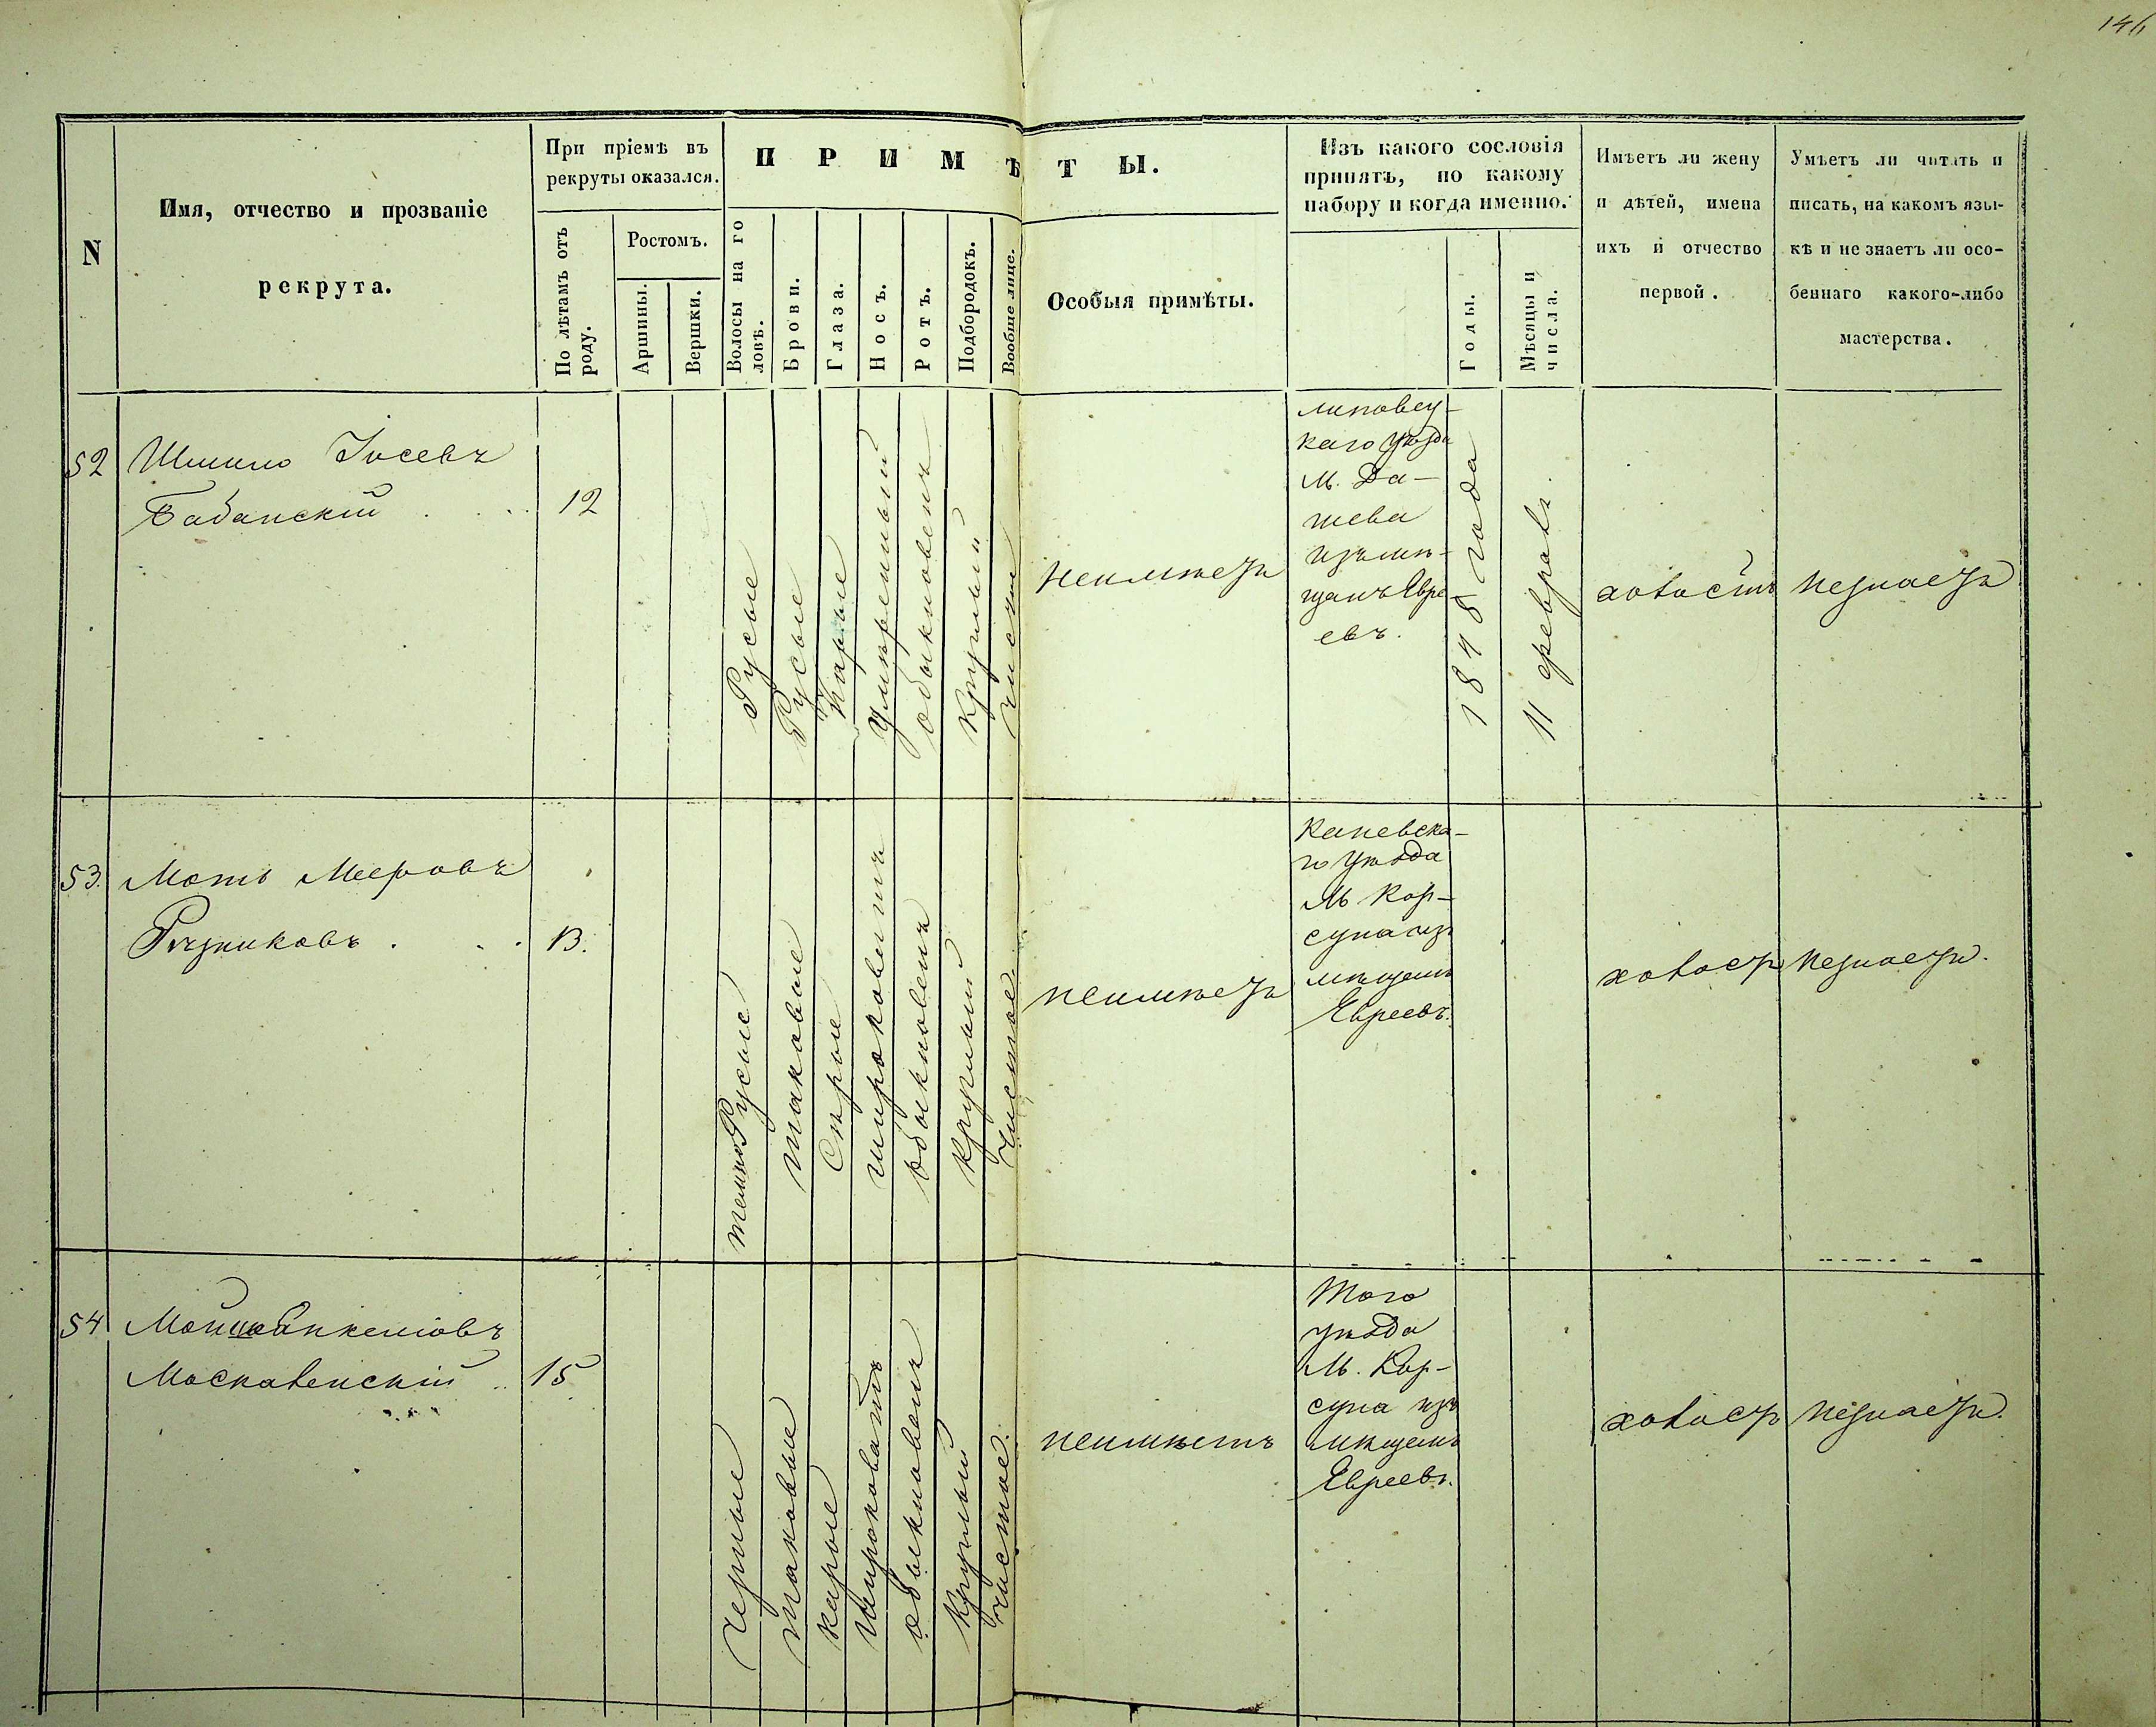 146
N
Имя, отчество и прозваніе
рекрута.
При пріемѣ въ
рекруты оказался.
По лѣтамъ отъ
роду.
Ростомъ.
Аршины.
Вершки.
ПРИМѢТЫ.
Волосы на го
ловѣ.
Брови.
Глаза.
Носъ.
Ротъ.
Подбородокъ.
Вообще лице.
Особыя примѣты.
Изъ какого сословія
принятъ, по какому
набору и когда именно.
Годы.
Мѣсяцы и
числа.
Имѣетъ ли жену
и дѣтей, имена
ихъ и отчество
первой.
Умѣетъ ли читать и
писать, на какомъ язы-
кѣ и не знаетъ ли осо-
беннаго какого-либо
мастерства.
52
Шмило Іосевъ
Бабанскій . . .
12
Русые
Русые
Карые
Умѣренный
обыкновенъ
круглый
чистое
неимѣетъ
липовец-
каго уѣзда
м. Да-
шева
изъ мѣ-
щанъ Евре
евъ.
1848 года
11 февраля.
холостъ
незнаетъ
53.
Моть Мееровъ
Рѣзниковъ . . .
13.
темноРусые
таковые
Сѣрые
широковатъ
обыкновенъ
круглый
чистое.
неимѣетъ
Каневска-
го уѣзда
м Кор-
суна изъ
мѣщанъ
Евреевъ.
холостъ
незнаетъ.
54
Москаленскій ..
15
черные
таковые
карые
широковатъ
обыкновенъ
круглый
чистое.
неимѣетъ
Того
уѣзда
м. Кор-
суна изъ
мѣщанъ
Евреевъ.
холостъ
незнаетъ.